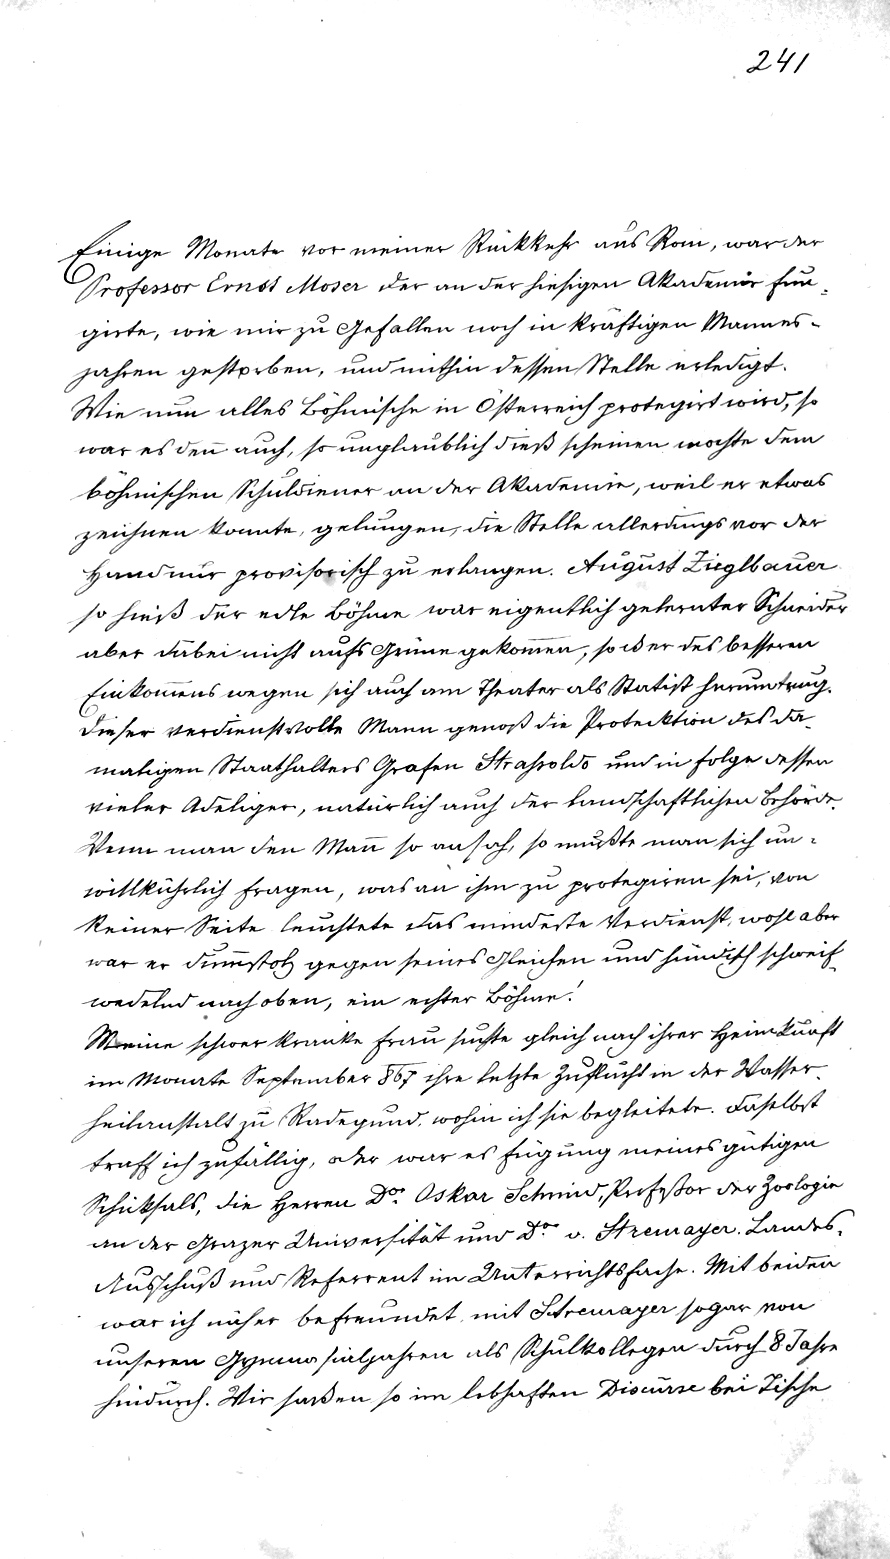 241
Einige Monate vor meiner Rückkehr aus Rom, war der
Professor Ernst Moser der an der hiesigen Akademie fun-
girte, wie mir zu Gefallen noch in kräftigen Mannes-
jahren gestorben, und mithin dessen Stelle erledigt.
Wie nun alles Böhmische in Österreich protegirt wird, so
war es deñ auch, so unglaublich dieß scheinen mochte dem
böhmischen Schuldiener an der Akademie, weil er etwas
zeichnen konnte, gelungen, die Stelle allerdings vor der
Hand nur provisorisch zu erlangen. August Zieglbauer
so hieß der edle Böhme war eigentlich gelernter Schneider
aber dabei nicht aufs Grüne gekom̄en, so daß er des besseren
Einkom̄ens wegen sich auch am Theater als Statist herumtrug.
Dieser verdienstvolle Mann genoß die Protecktion des da-
maligen Staathalters Grafen Strasoldo und in folge dessen
vieler Adeliger, natürlich auch der landschaftlichen Behörde.
Wenn man den Mañ so ansah, so mußte man sich un-
willkührlich fragen, was an ihm zu protegiren sei, von
keiner Seite leuchtete das mindeste Verdienst, wohl aber
war er dum̄stolz gegen seines Gleichen und hündisch schweif-
wedelnd nach oben, ein echter Böhme!
Meine schwer kranke Frau suchte gleich nach ihrer Heimkunft
im Monate September 867 ihre letzte Zuflucht in der Wasser-
heilanstalt zu Radegund, wohin ich sie begleitete. Daselbst
traff ich zufällig, oder war es Fügung meines gütigen
Schicksals, die Herren Dor. Oskar Schmid, Profeßor der Zoologie
an der Grazer Universität und Dor. v. Stremayer. Landes-
Ausschuß und Referrent im Unterrichtsfache. Mit beiden
war ich näher befreundet, mit Stremayer sogar von
unseren Gymnasialjahren als Schulkollegen durch 8 Jahre
hindurch. Wir saßen so im lebhaften Discurse bei Tische